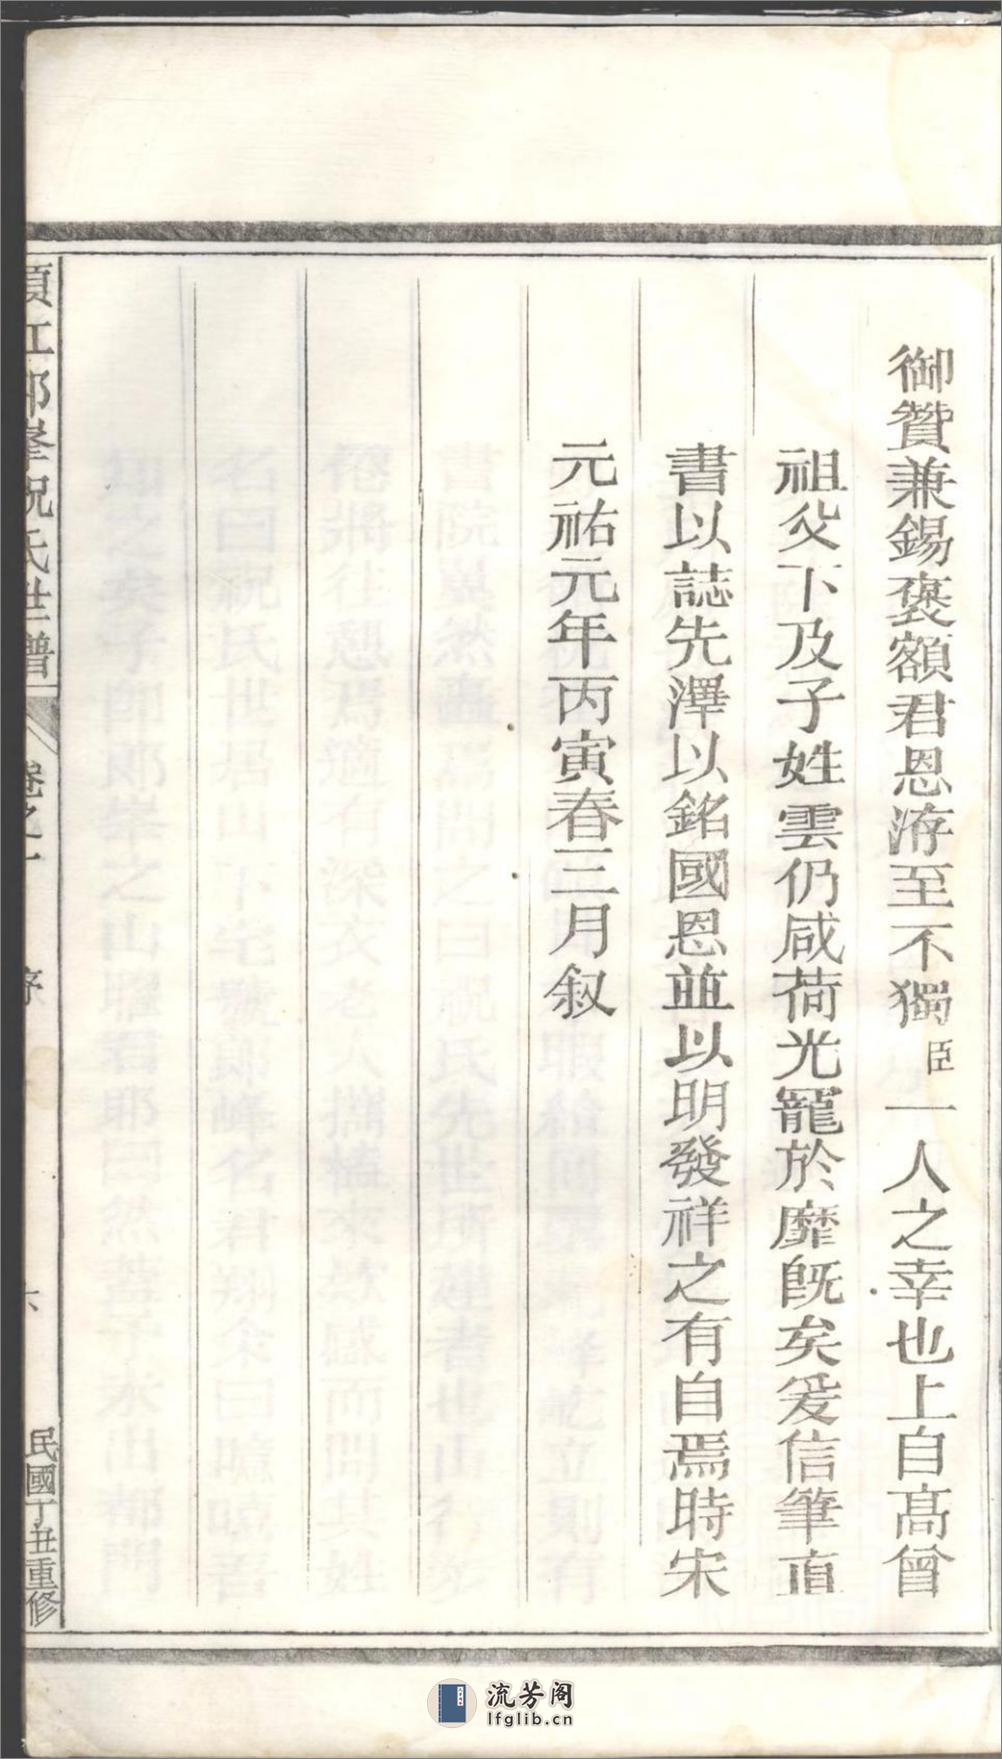 御贊兼錫褒額君恩洊至不獨臣一人之幸也上自高曾
祖父下及子姓雲仍咸荷光寵於靡旣矣爰信筆直
書以誌先澤以銘國恩並以明發祥之有自焉時宋
元祐元年丙寅春三月叙
郎峯祝氏世譜
卷之一
序
六
民國丁丑重修
流芳阁
lfglib.cn